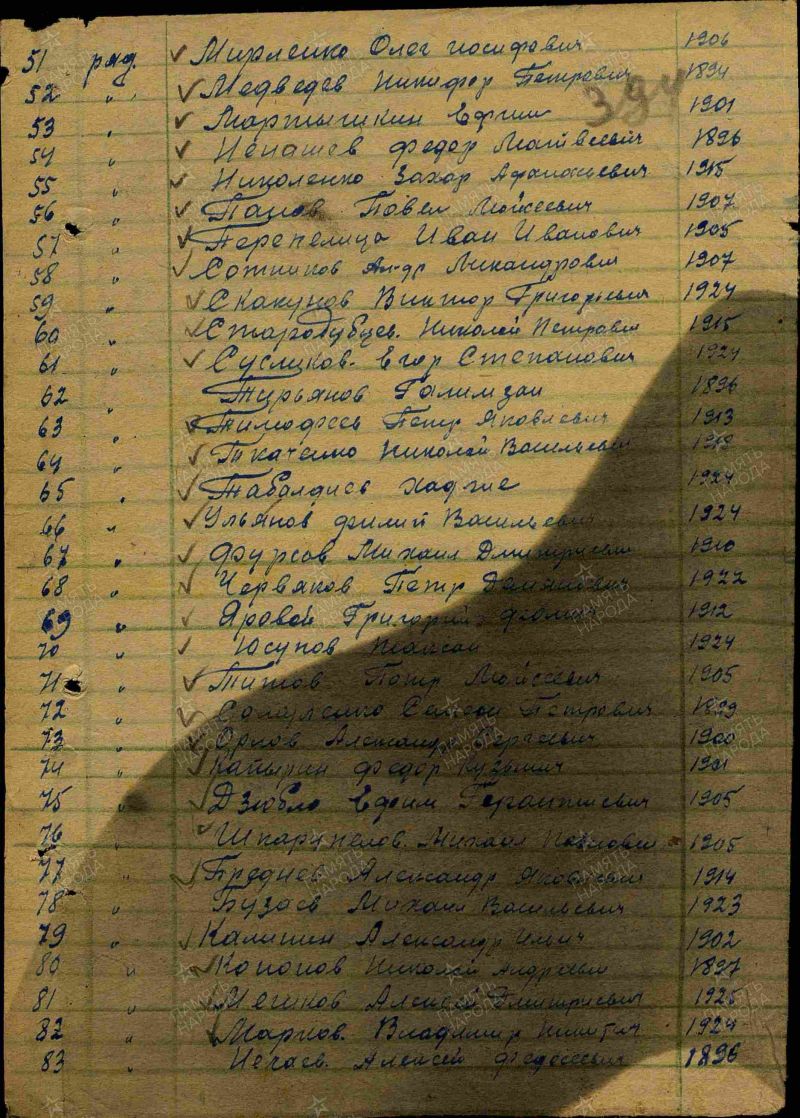 51 ряд. Мирленко Олег иосифович 1906
52 " Медведев Никифор Петрович 1894
53 " Мартышкин Ефим 1901
54 " Ненашев федор Матвеевич 1896
55 " Николенко Захар Афанасьевич 1915
56 " Павел Мойсеевич 1907
57 " Перепелица Иван Иванович 1905
58 " Сотников Ал-др Никандрович 1907
59 " Скакунов Виктор Григорьевич 1924
60 " Стародубцев. Николай Петрович 1915
61 " Сусликов. Егор Степанович 1924
62 " Галимзан 1896
63 " Тимофеев Петр Яковлевич 1913
64 " Ткаченко Николай Васильевич
65 " Таболдиев 1924
66 " Ульянов филип Васильевич 1924
67 " Фурсов Михаил Дмитриевич 1910
68 " Червяков Петр Демянович 1922
69 " Яровой Григорий 1912
70 " Юсупов 1924
71 " Титов Петр Мойсеевич 1905
72 " Семен Петрович 1899
73 " Орлов Александр Сергеевич 1900
74 " Капырин федор Кузьмич 1901
75 " Дзюбло Ефим 1905
76 " Михаил Павлович 1905
77 " Александр Яковлевич 1914
78 " Бузаев Михаил Васильевич 1923
79 " Калинин Александр Ильич 1902
80 " Кононов Николай Андреевич 1897
81 " Алексей Дмитриевич 1925
82 " Марков. Владимир Никитич 1924
83 " Нечаев. Алексей Федосеевич 1896
ПАМЯТЬ НАРОДА